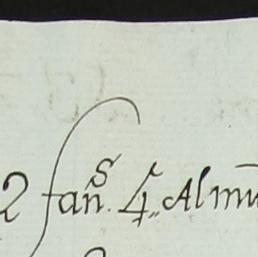 2 fan.s 4,, Almu